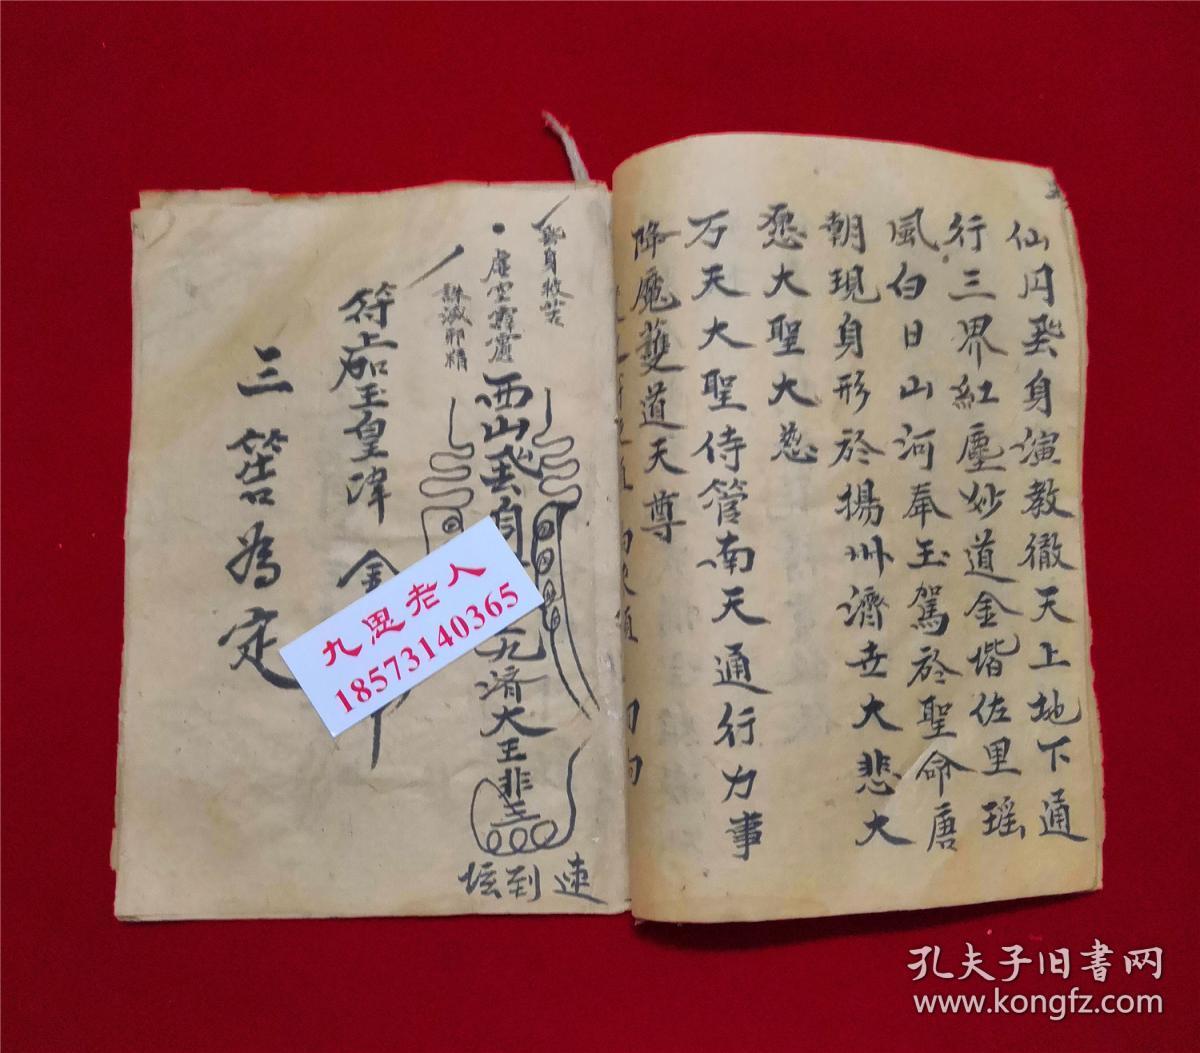 仙円發身演教徹天上地下通
行三界紅塵妙道金堦佐里瑶
風白日山河奉玉駕於聖命唐
朝現身形於揚州濟世大悲大
愿大聖大慈
万天大聖侍管南天通行力事
降魔護道天尊
身救苦
虚空霹靂
誅滅邪精
西山發身
九濟大王
速到坛
符上加玉皇津 金
三筶為定
九思老人
18573140365
孔夫子旧书网
www.kongfz.com